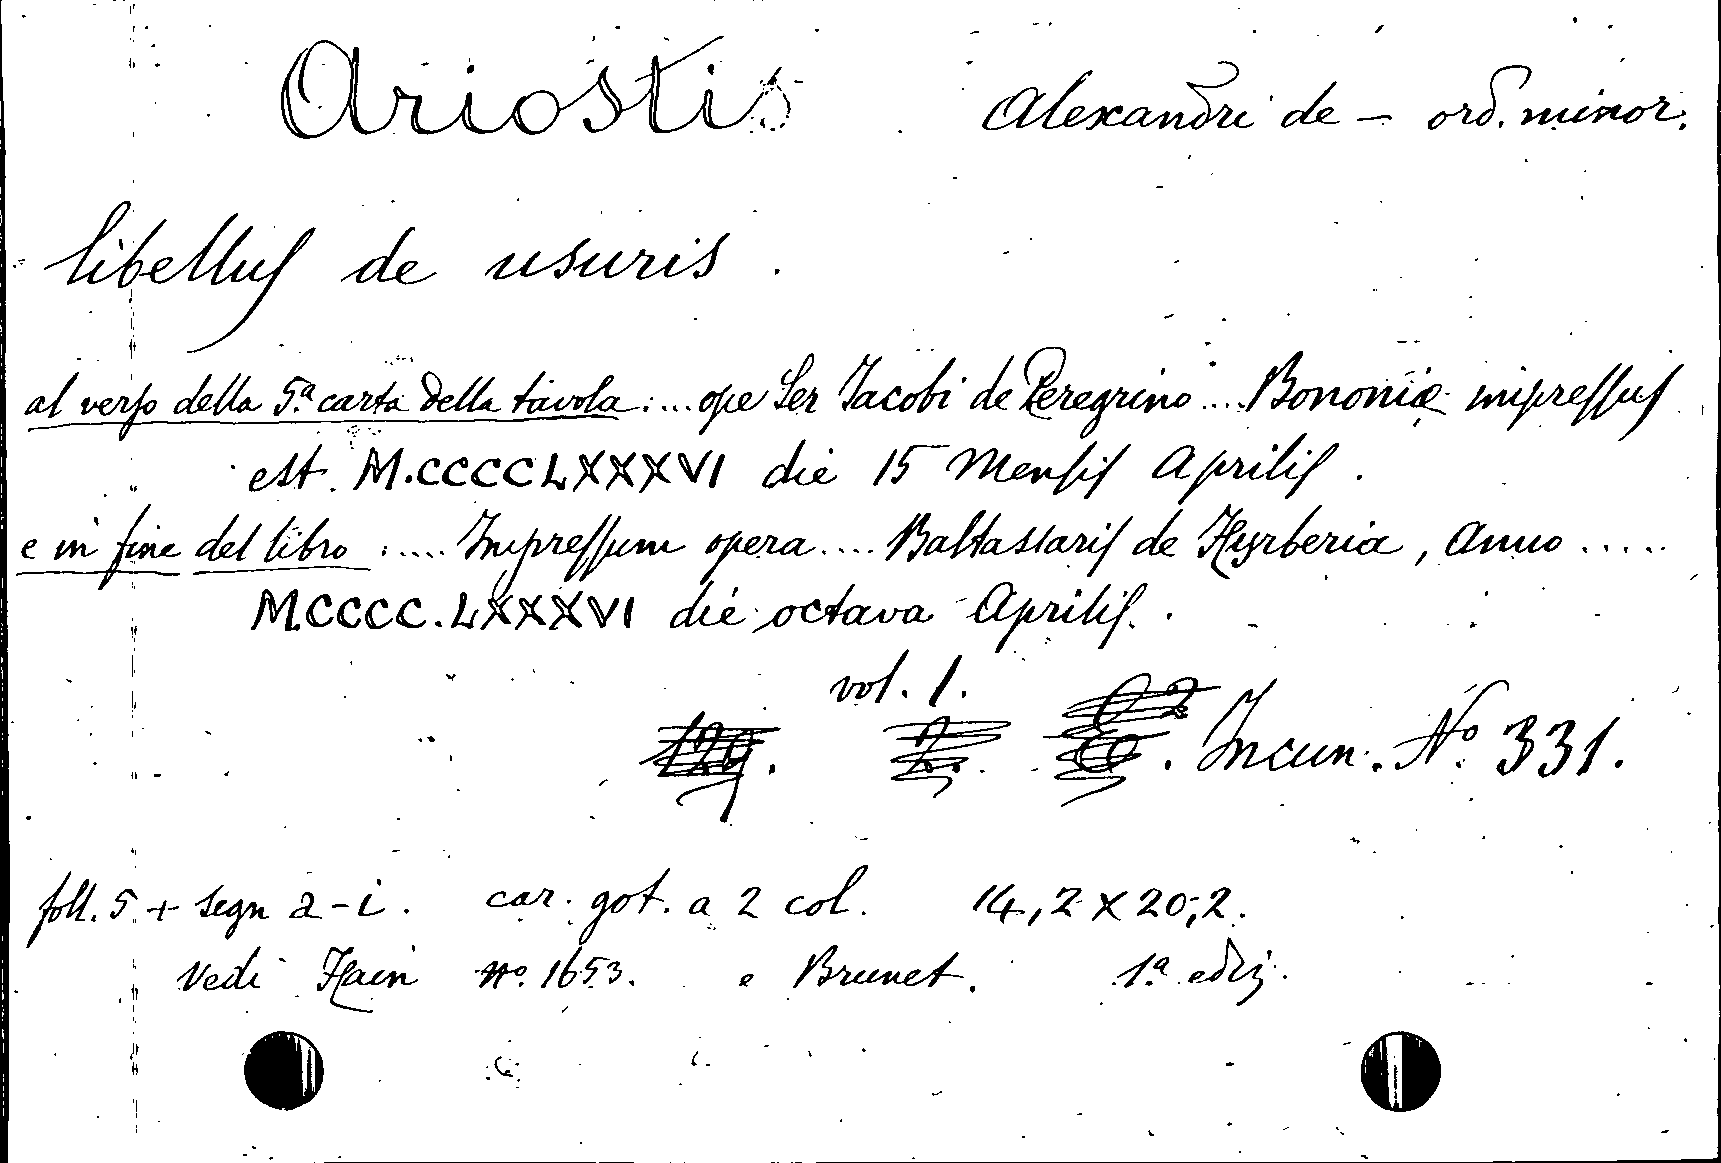 Ariostis Alexandri de – ord. minor.
libelluſ de usuris.
al verſo della 5.ª carta della tavola: .... ope Ser Jacobi de Peregrino .... Bononiæ impreſſuſ
est M.CCCCLXXXVI die 15 Menſiſ Apriliſ.
e in fine del libro: ..... Impreſſum opera .... Baltassariſ de Hyrberia, Anno .....
MCCCC.LXXXVI die octava Apriliſ.
vol. 1.
Incun. Nº 331.
foll. 5 + segn a-i. car. got. a 2 col. 14,2 X 20,2.
Vedi Hain Nº. 1653. e Brunet. 1ª ediz.